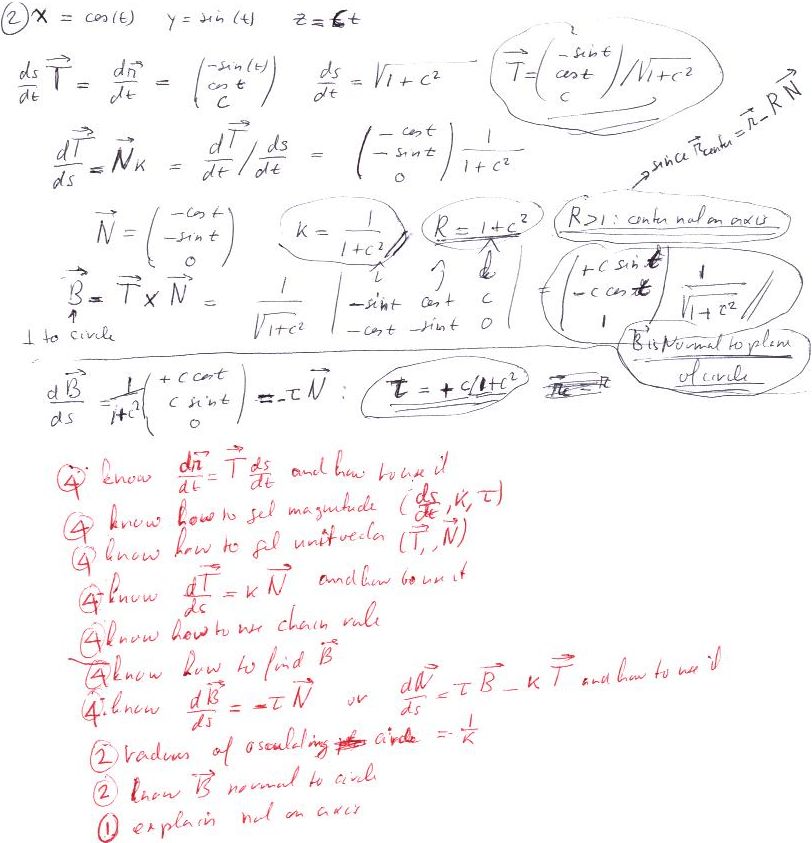 ② x = cos(t) y = sin(t) z = ct
ds/dt T⃗ = dr⃗/dt = (-sin(t), cos t, c) ds/dt = √(1+c²) T⃗ = (-sin t, cos t, c)/√(1+c²)
dT⃗/ds = N⃗κ = dT⃗/dt / ds/dt = (-cos t, -sin t, 0) 1/(1+c²) → since r⃗center = r⃗ - R N⃗
N⃗ = (-cos t, -sin t, 0) κ = 1/(1+c²) R = 1+c² R>1 : center not on axis
B⃗ = T⃗ × N⃗ = 1/√(1+c²) | i j k ; -sin t cos t c ; -cos t -sin t 0 | = (+c sin t, -c cos t, 1) 1/√(1+c²)
⊥ to circle
B⃗ is Normal to plane of circle
dB⃗/ds = 1/(1+c²) (+c cos t, c sin t, 0) = -τ N⃗ : τ = +c/1+c²
④ know dr⃗/dt = T⃗ ds/dt and how to use it
④ know how to get magnitude (ds/dt, κ, τ)
④ know how to get unit vector (T⃗, N⃗)
④ know dT⃗/ds = κ N⃗ and how to use it
④ know how to use chain rule
④ know how to find B⃗
④ : know dB⃗/ds = -τ N⃗ or dN⃗/ds = τ B⃗ - κ T⃗ and how to use it
② radius of osculating circle = 1/κ
② know B⃗ normal to circle
① explain not on axis